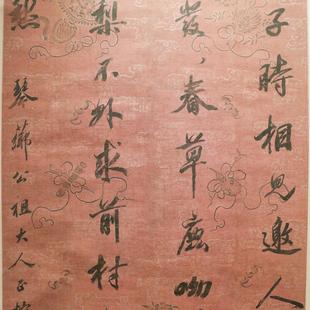 子時相見邀人
發、春草鹿呦
梨不外求前村
愁
琴薌公祖大人正